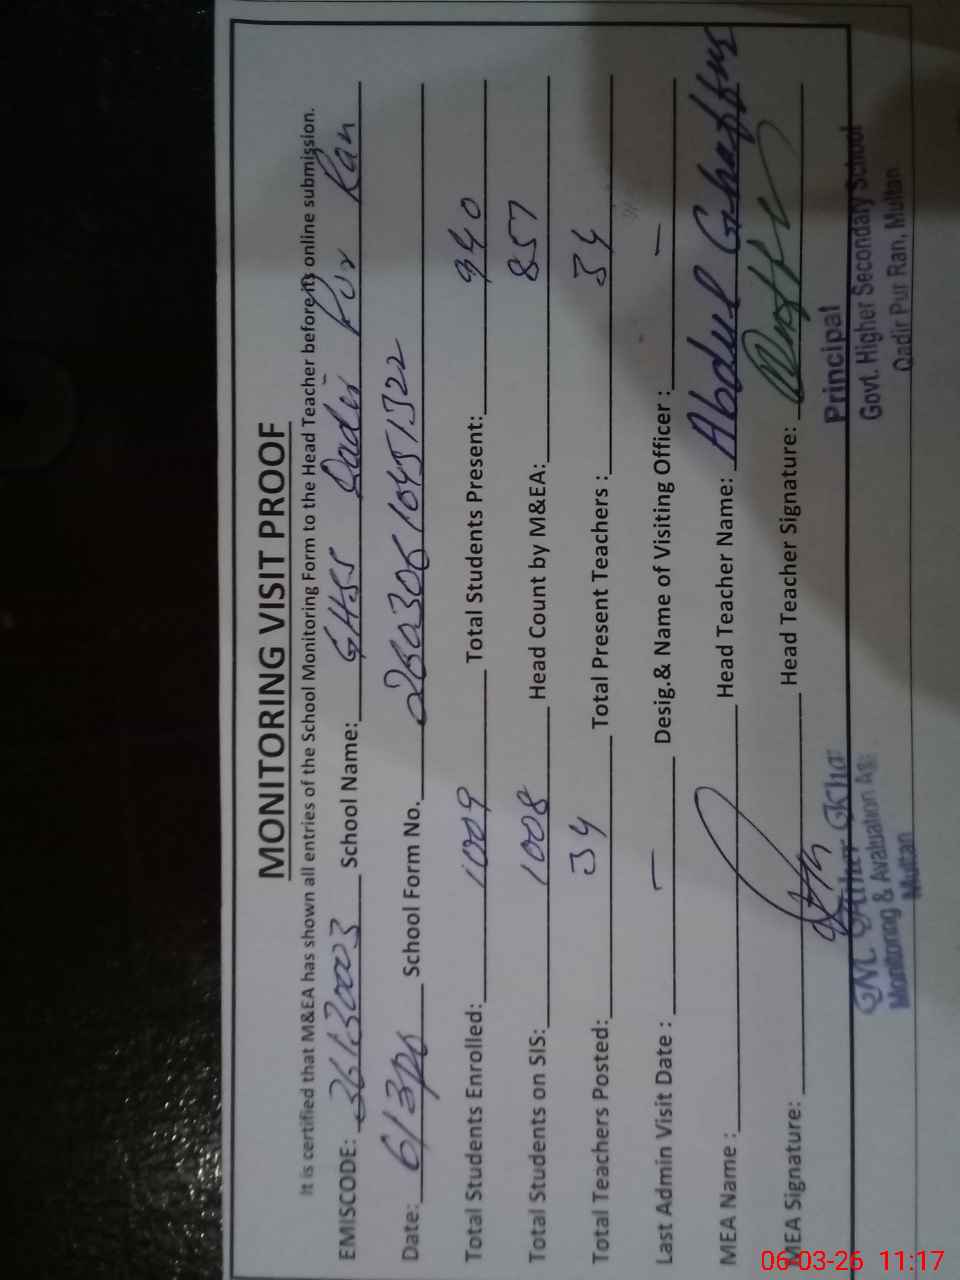 MONITORING VISIT PROOF
It is certified that M&EA has shown all entries of the School Monitoring Form to the Head Teacher before its online submission.
EMISCODE: 36130003 School Name: GHSS Qadir Pur Ran
Date: 6/3/26 School Form No. 26030610451322
Total Students Enrolled: 1009 Total Students Present: 940
Total Students on SIS: 1008 Head Count by M&EA: 857
Total Teachers Posted: 34 Total Present Teachers : 34
Last Admin Visit Date : — Desig.& Name of Visiting Officer : —
MEA Name : Head Teacher Name: Abdul Ghaffur
MEA Signature: Head Teacher Signature:
Principal
Govt. Higher Secondary School
Qadir Pur Ran, Multan
Monitoring & Avaluation As
Multan
06-03-26 11:17